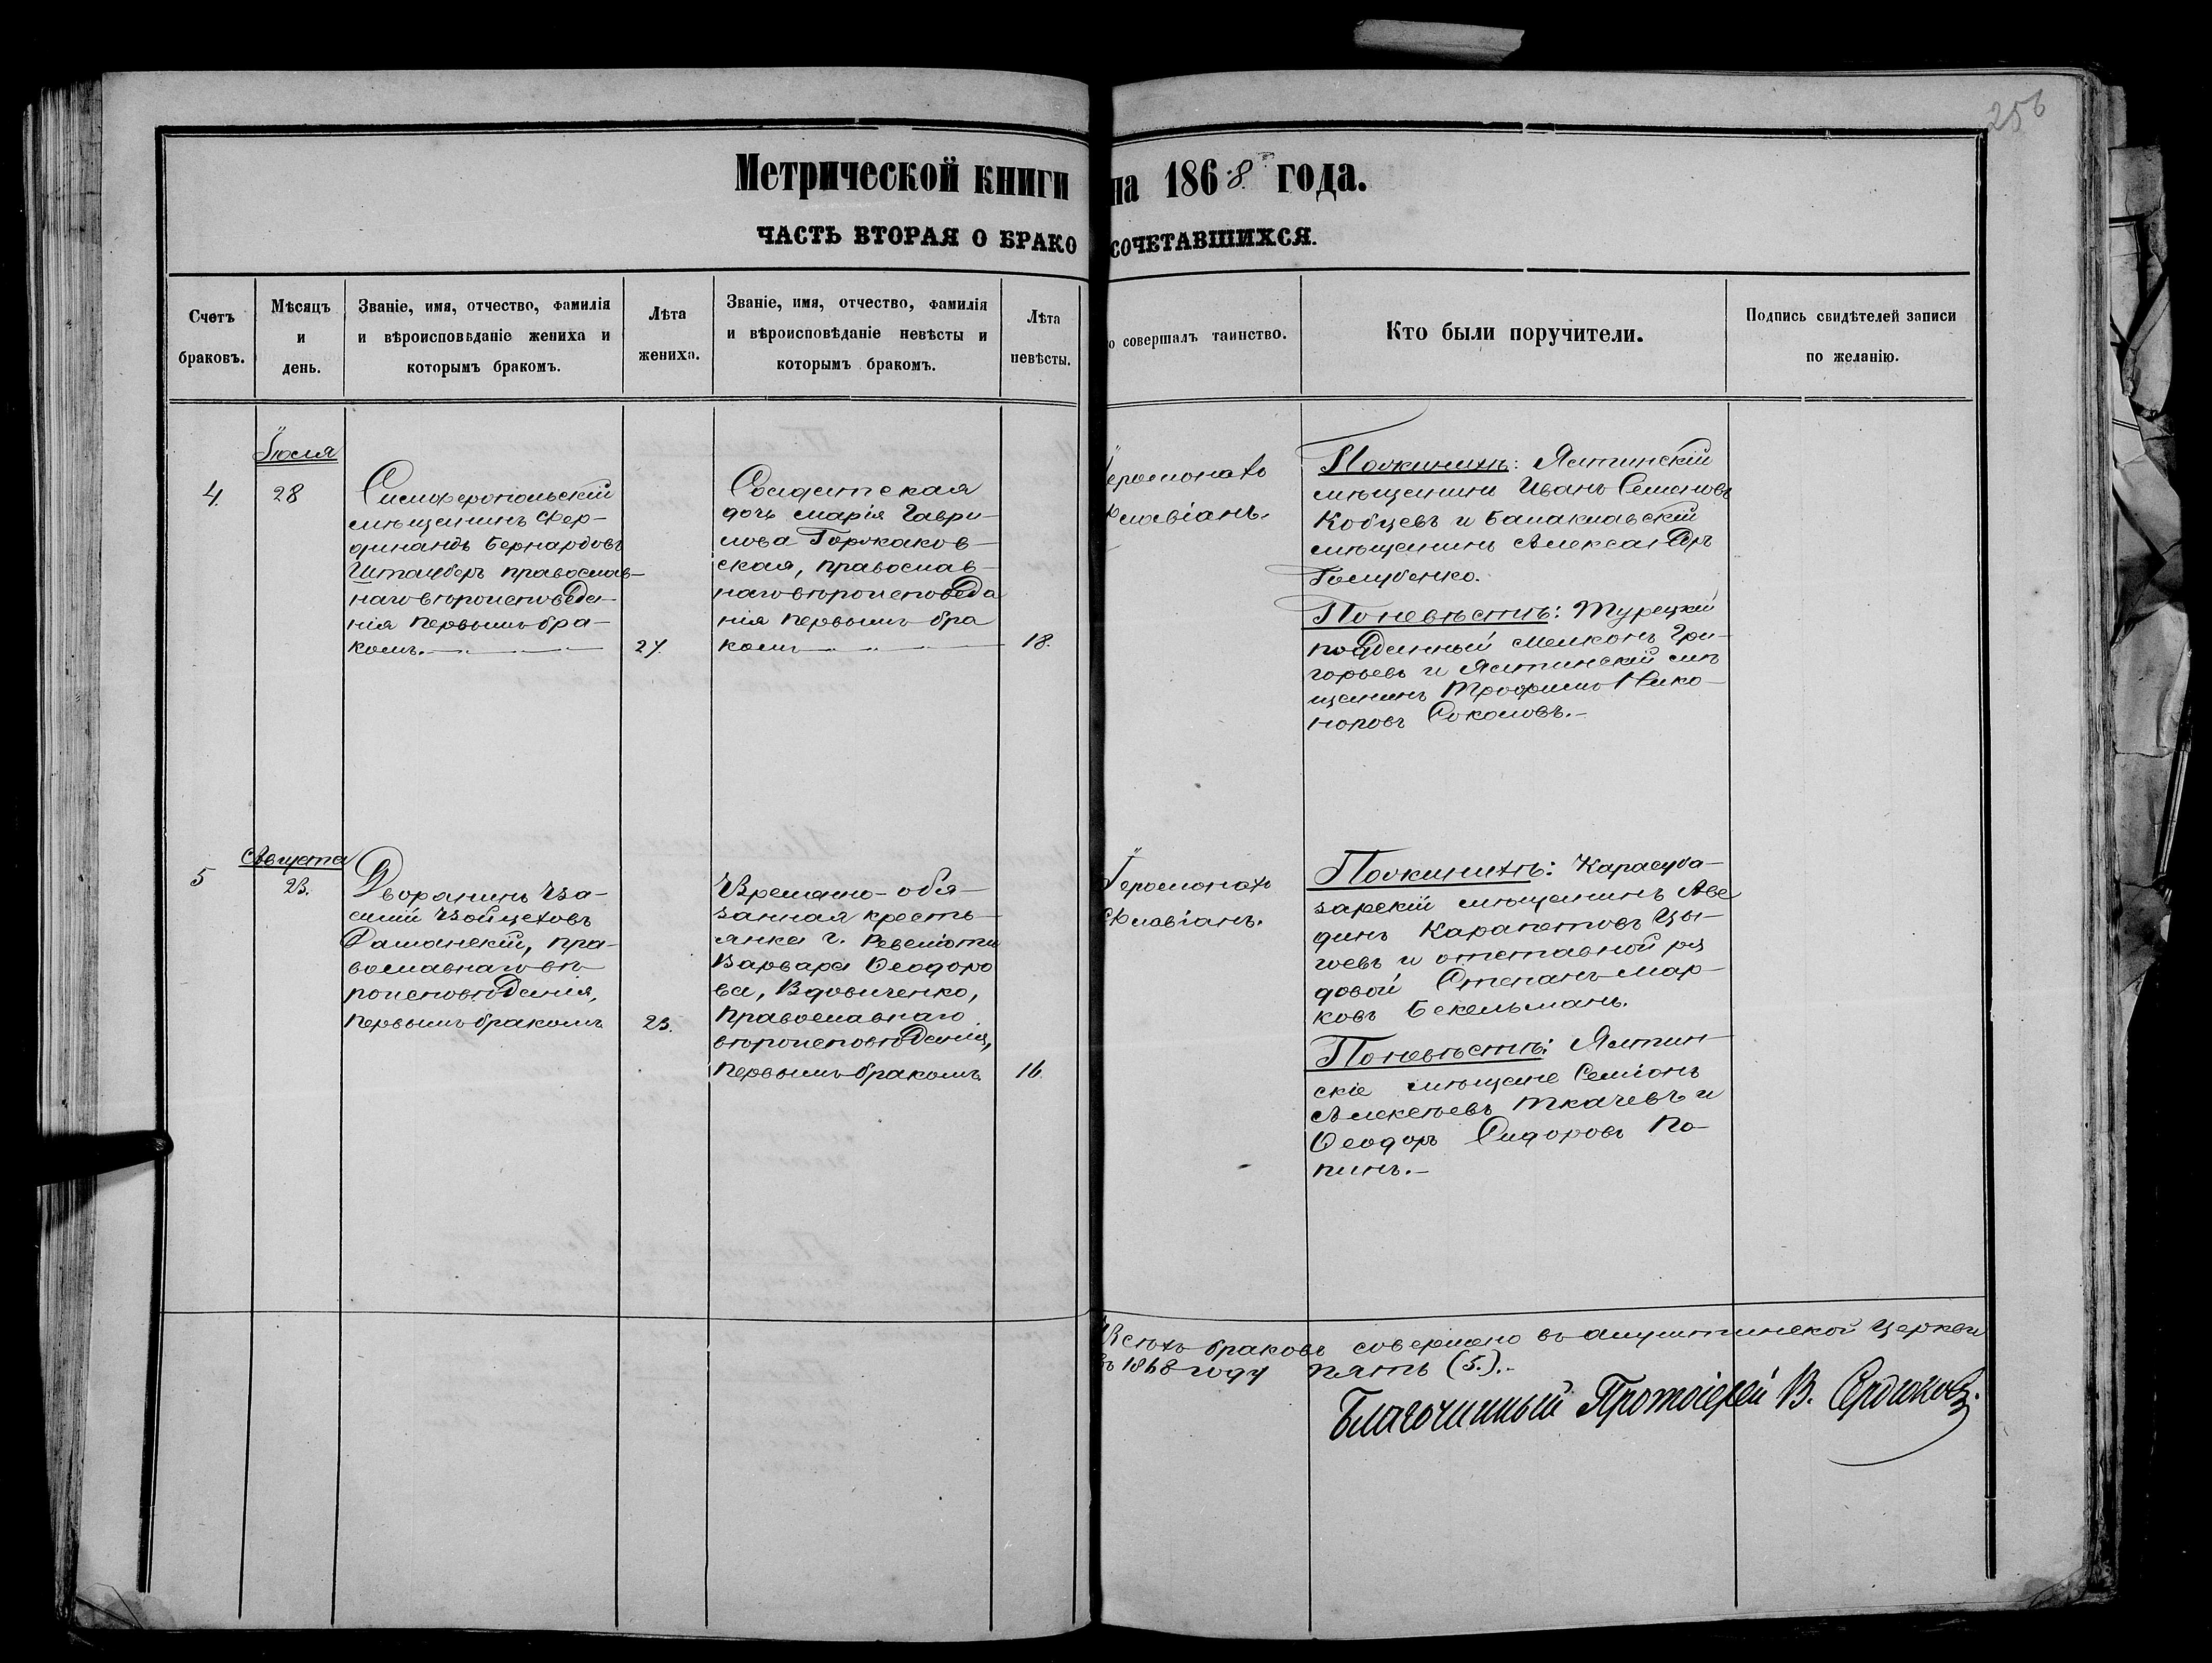 256
Метрической книги на 1868 года.
ЧАСТЬ ВТОРАЯ О БРАКО СОЧЕТАВШИХСЯ.
Счетъ браковъ.
Мѣсяцъ и день.
Званіе, имя, отчество, фамилія
и вѣроисповѣданіе жениха и
которымъ бракомъ.
Лѣта жениха.
Званіе, имя, отчество, фамилія
и вѣроисповѣданіе невѣсты и
которымъ бракомъ.
Лѣта невѣсты.
о совершалъ таинство.
Кто были поручители.
Подпись свидѣтелей записи
по желанію.
4.
Іюля
28
Симферопольскій
мѣщанинъ Фер-
динандъ Бернардовъ
Штацберъ православ-
наго вѣроисповѣда-
нія первымъ бра-
комъ.
27.
Солдатская
дочь Марія Гаври-
лова Горжаков-
ская, православ-
наго вѣроисповѣда
нія первымъ бра
комъ
18.
Іеромонахъ
Флавіанъ.
По женихѣ: Ялтинскій
мѣщанинъ Иванъ Семеновъ
Кобцевъ и Балаклавскій
мѣщанинъ Александръ
Голубенко.
По невѣстѣ: Турецкій
подданный Мелконъ Гри-
горьевъ и Ялтинскій мѣ
щанинъ Трофимъ Нико-
норовъ Соколовъ.-
5
Августа
23.
Дворянинъ Ва-
силій Войцеховъ
Даманскій, пра-
вославнаго вѣ-
роисповѣданія,
первымъ бракомъ
23.
Времянно-обя-
занная кресть-
янка г. Ревеліоти
Варвара Ѳеодоро
ва, Вдовиченко,
православнаго
вѣроисповѣданія,
первымъ бракомъ
16.
Іеромонахъ
Флавіанъ.
По женихѣ: Карасуба-
зарскій мѣщанинъ Аве
динъ Карапетовъ Цы-
гоевъ и отставной ря
довой Степанъ Мар-
ковъ Бекельманъ.
По невѣстѣ: Ялтин-
скіе мѣщане Семіонъ
Алексѣевъ Ткачевъ и
Ѳеодоръ Сидоровъ По-
пинъ.-
Всѣхъ браковъ совершено въ алуштинской церкви
въ 1868 году пять (5.).-
Благочинный Протоіерей В. Сердюковъ.